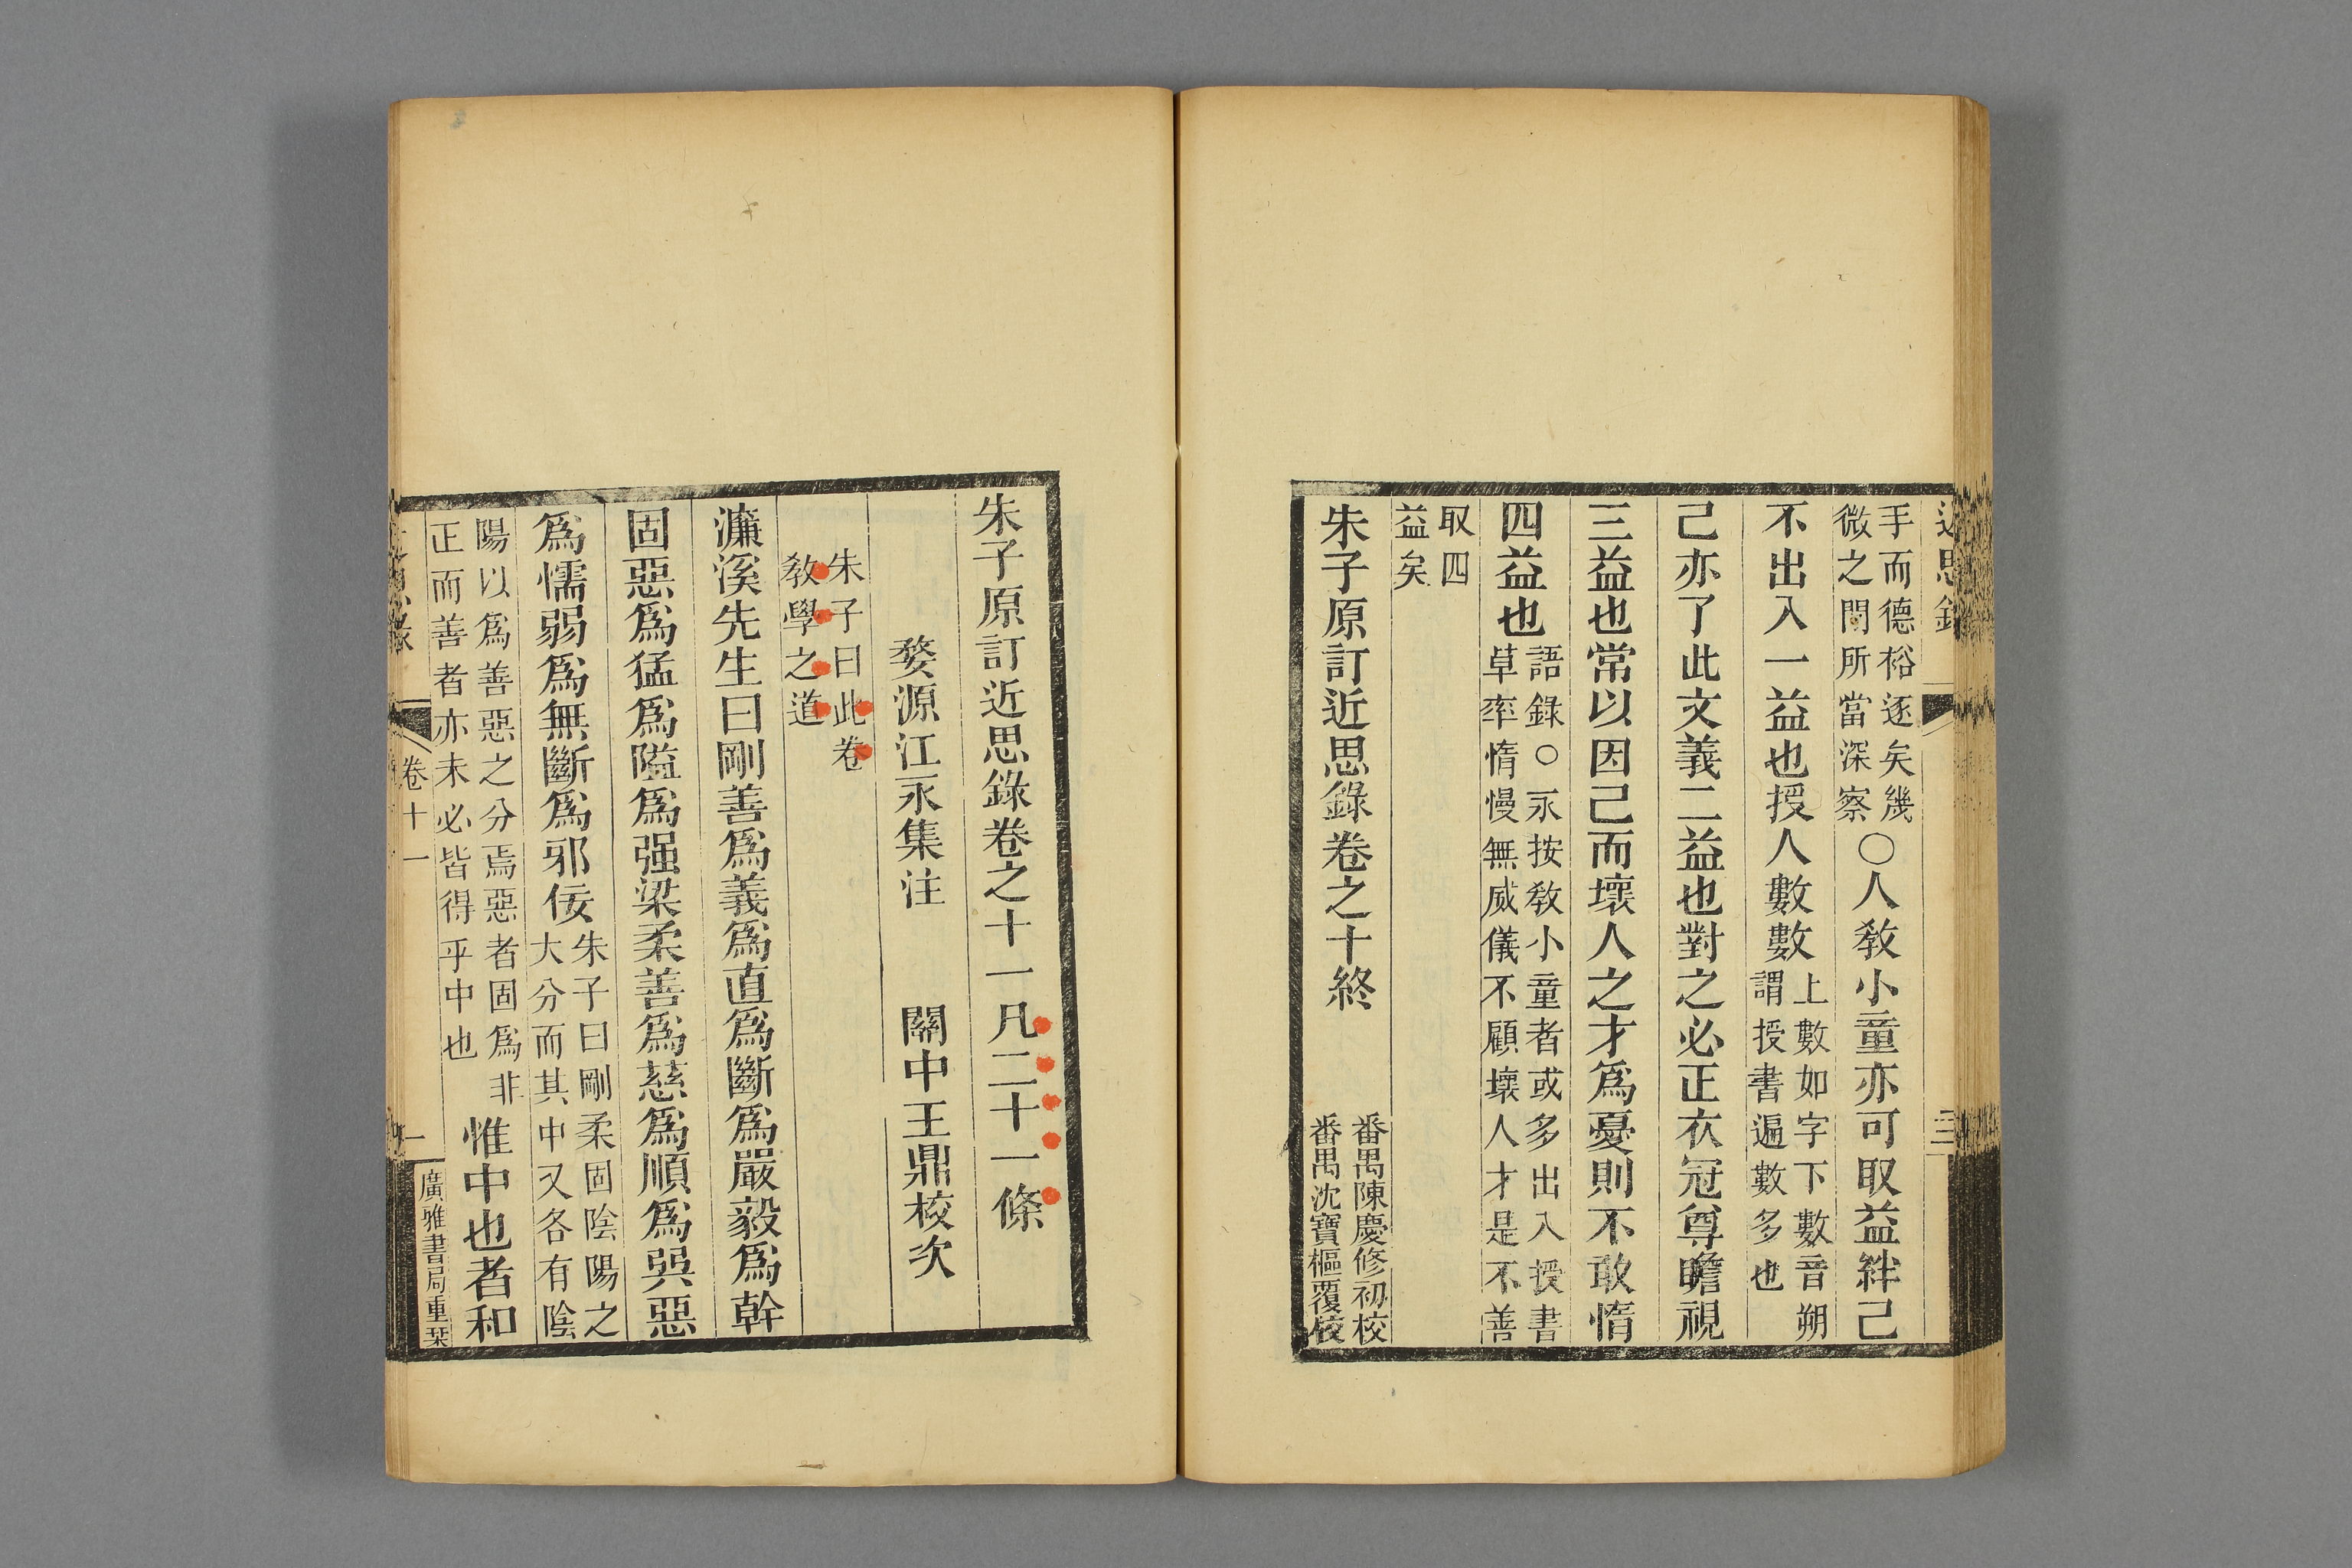 近思錄
手而德裕逐矣幾
微之閒所當深察
○人敎小童亦可取益絆己
不出入一益也授人數數
上數如字下數音朔
謂授書遍數多也
己亦了此文義二益也對之必正衣冠尊瞻視
三益也常以因己而壞人之才爲憂則不敢惰
四益也
語錄○永按敎小童者或多出入授書
草率惰慢無威儀不顧壞人才是不善
取四
益矣
朱子原訂近思錄卷之十終
番禺陳慶修初校
番禺沈寶樞覆校
朱子原訂近思錄卷之十一凡二十一條
婺源江永集注 關中王鼎校次
朱子曰此卷
敎學之道
濂溪先生曰剛善爲義爲直爲斷爲嚴毅爲幹
固惡爲猛爲隘爲强梁柔善爲慈爲順爲巽惡
爲懦弱爲無斷爲邪佞
朱子曰剛柔固陰陽之
大分而其中又各有陰
陽以爲善惡之分焉惡者固爲非
正而善者亦未必皆得乎中也
惟中也者和
卷十一
一
廣雅書局重栞